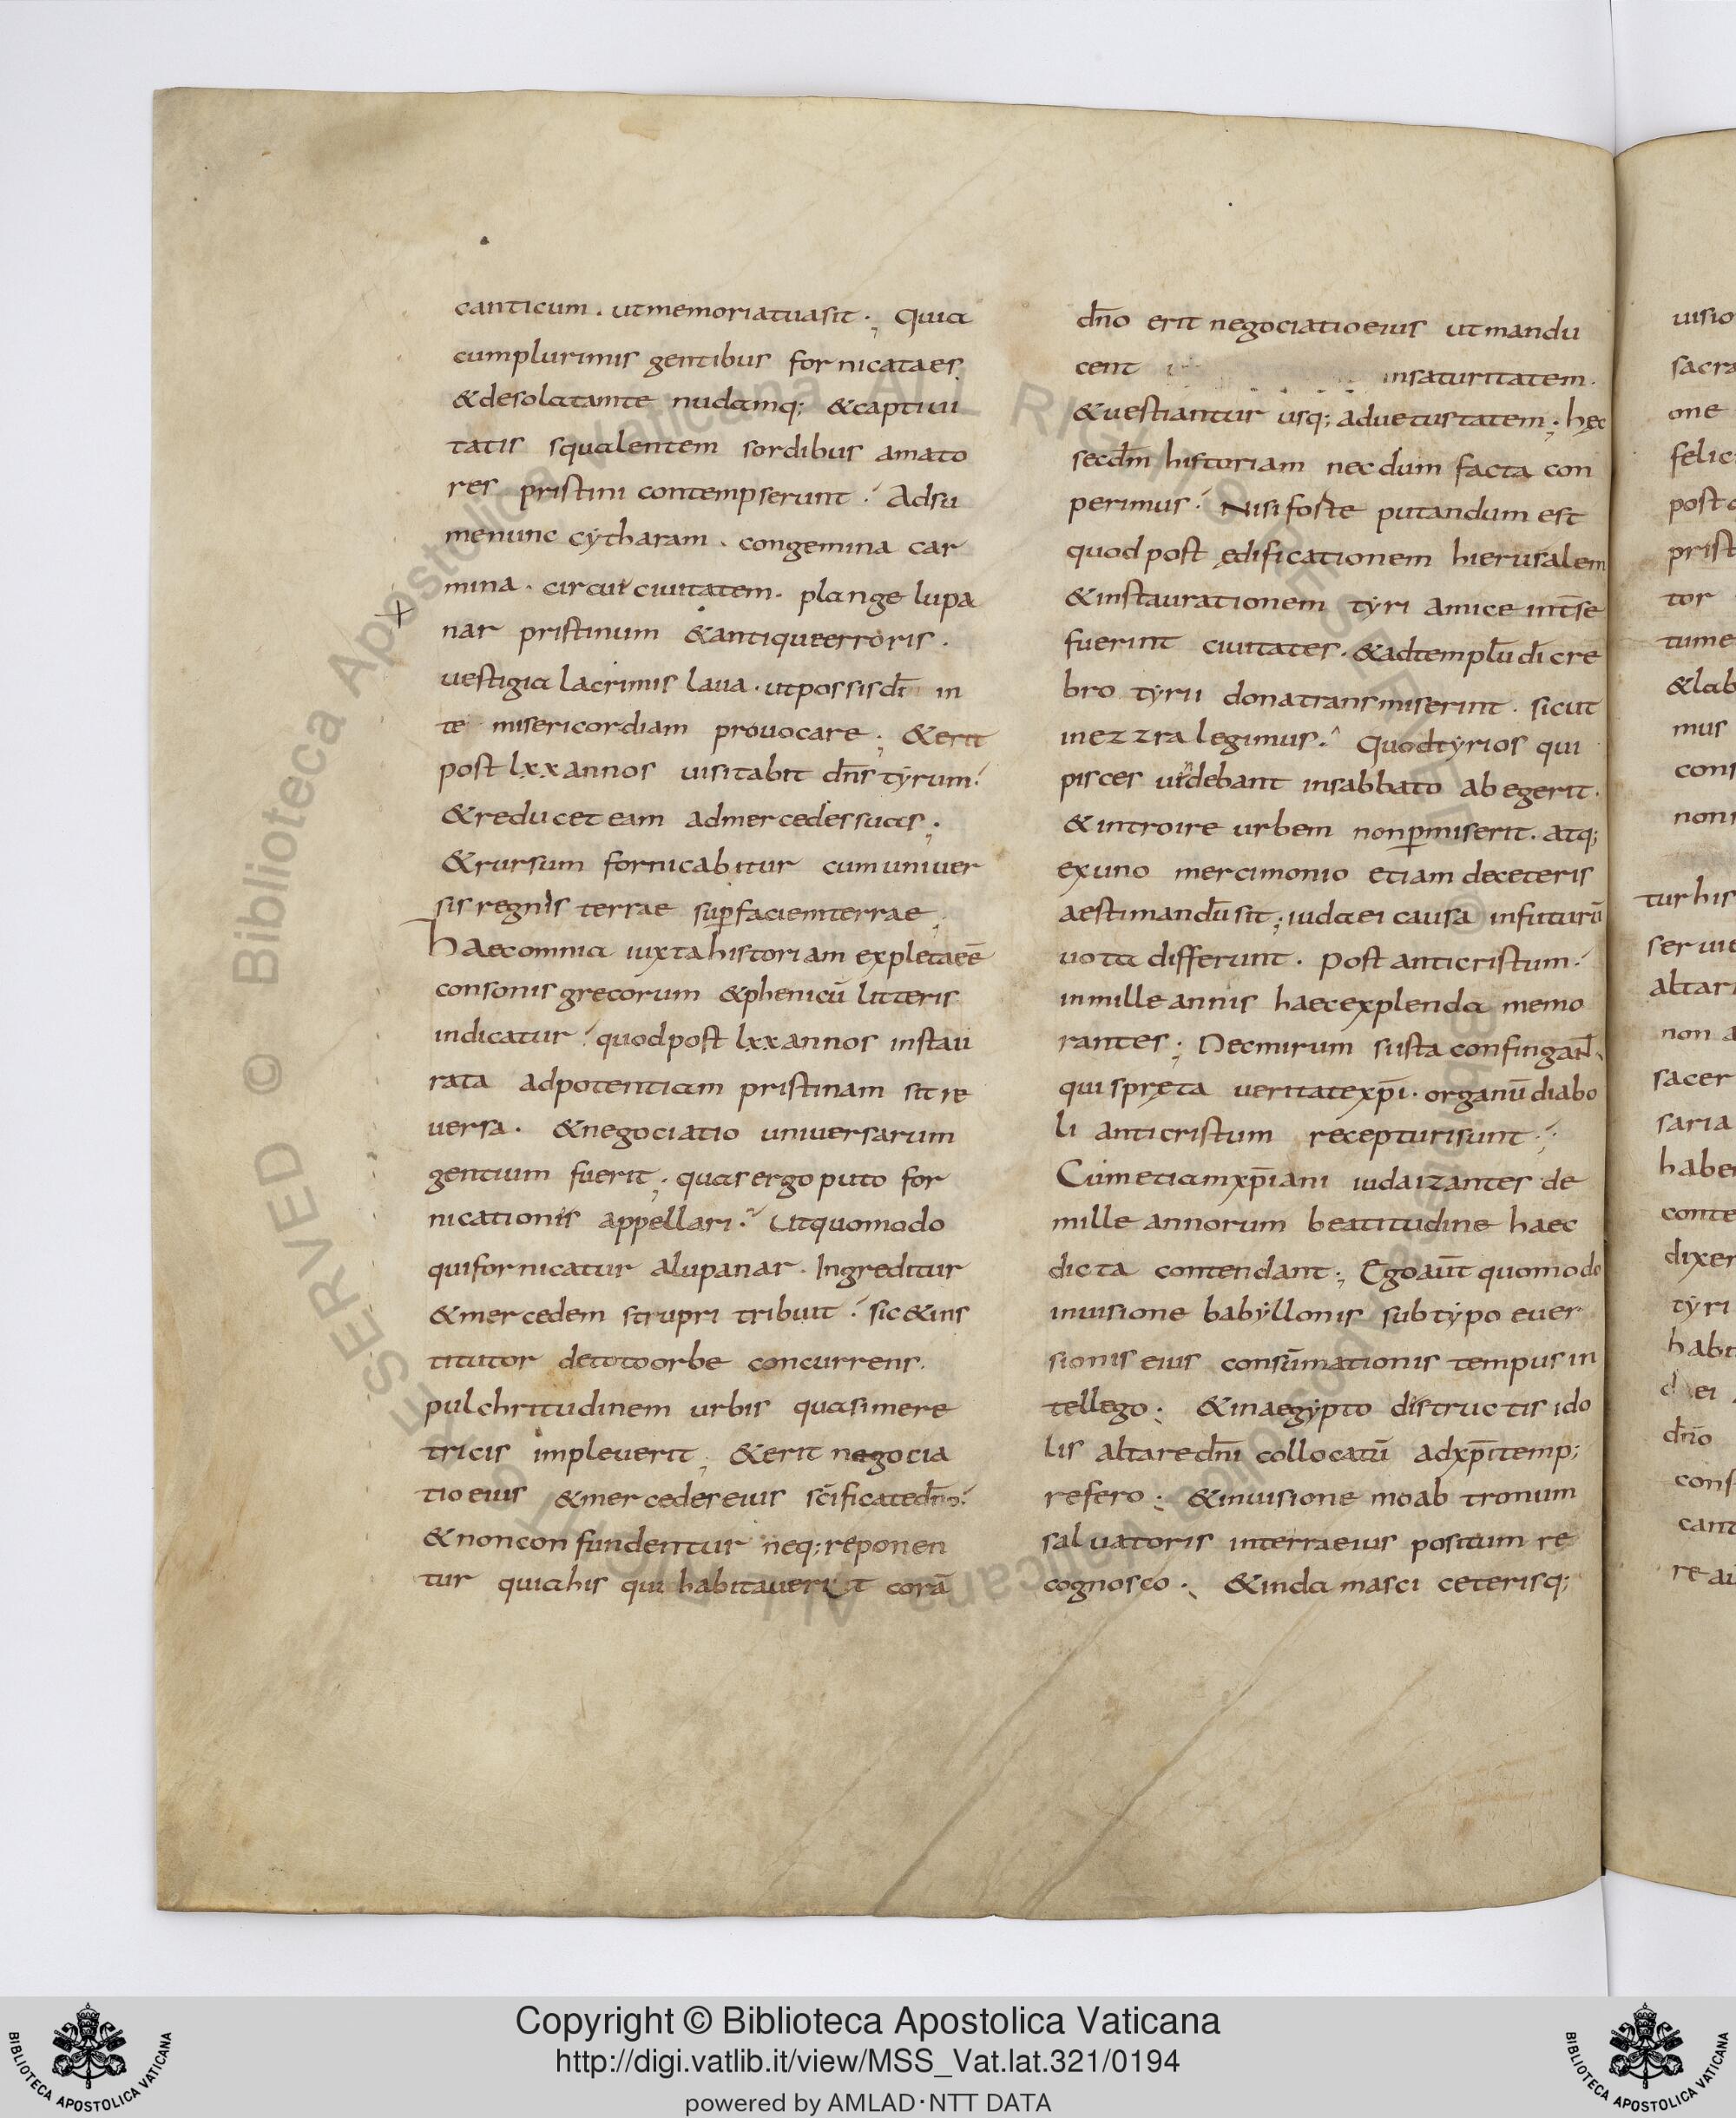 canticum . ut memoria tua sit ; Quia
cum plurimis gentibus fornicata es
& desolatam te nudamq; & captiui
tatis squalentem sordibus amato
res pristini contempserunt . Adsu
me nunc cytharam . congemina car
mina . circui ciuitatem . plange lupa
nar pristinum & antique erroris .
uestigia lacrimis laua . ut possis dī in
te misericordiam prouocare ; & erit
post lxx annos uisitabit dn̄s tyrum .
& reducet eam ad mercedes suas ;
& rursum fornicabitur cum uniuer
sis regnis terrae sup faciem terrae ;
Haec omnia iuxta historiam expleta eē
consonis grecorum & phenicū litteris
indicatur . quod post lxx annos instau
rata ad potentiam pristinam sit re
uersa . & negociatio uniuersarum
gentium fuerit ; quas ergo puto for
nicationis appellari . Ut quomodo
qui fornicatur a lupanar . Ingreditur
& mercedem strupri tribuit . sic & ins
titutor de toto orbe concurrens .
pulchritudinem urbis quasi mere
tricis impleuerit ; & erit negocia
tio eius & mercedes eius sc̄ificate dn̄o .
& non confundentur neq; reponen
tur quia his qui habitauerit corā
dn̄o erit negociatio eius ut mandu
cent in saturitatem .
& uestiantur usq; ad uetustatem ; hęc
secdm̄ historiam necdum facta con
perimus . Nisi foste putandum est
quod post ędificationem hierusalem
& instaurationem tyri amice int̄ se
fuerint ciuitates . & ad templū dī cre
bro tyrii dona transmiserint . sicut
in ezzra legimus . Quod tyrios qui
pisces uidebant in sabbato abegerit .
& introire urbem non pmiserit . atq;
ex uno mercimonio etiam de ceteris
aestimandū sit ; iudaei causa in futurū
uota differunt . post anticristum .
in mille annis haec explenda memo
rantes ; Nec mirum si ista confingant
qui spreta ueritate xp̄i . organū diabo
li anticristum recepturi sunt .
Cūm etiam xp̄iani iudaizantes de
mille annorum beatitudine haec
dicta contendant ; Ego aūt quomodo
in uisione babyllonis sub typo euer
sionis eius consūmationis tempus in
tellego ; & in aegypto distructis ido
lis altare dn̄i collocatū ad xp̄i temp;
refero ; & in uisione moab tronum
saluatoris in terra eius positum re
cognosco ; & in damasci ceterisq;
uisio
sacra
one
felic
post
prist
tor
tume
& lab
mus
cons
non
tur his
serui
altari
non a
sacer
saria
habe
conte
dixer
tyri
habi
dei
dn̄o
cons
cant
re au
Copyright © Biblioteca Apostolica Vaticana
http://digi.vatlib.it/view/MSS_Vat.lat.321/0194
powered by AMLAD・NTT DATA
BIBLIOTECA APOSTOLICA VATICANA
BIBLIOTECA APOSTOLICA VATICANA